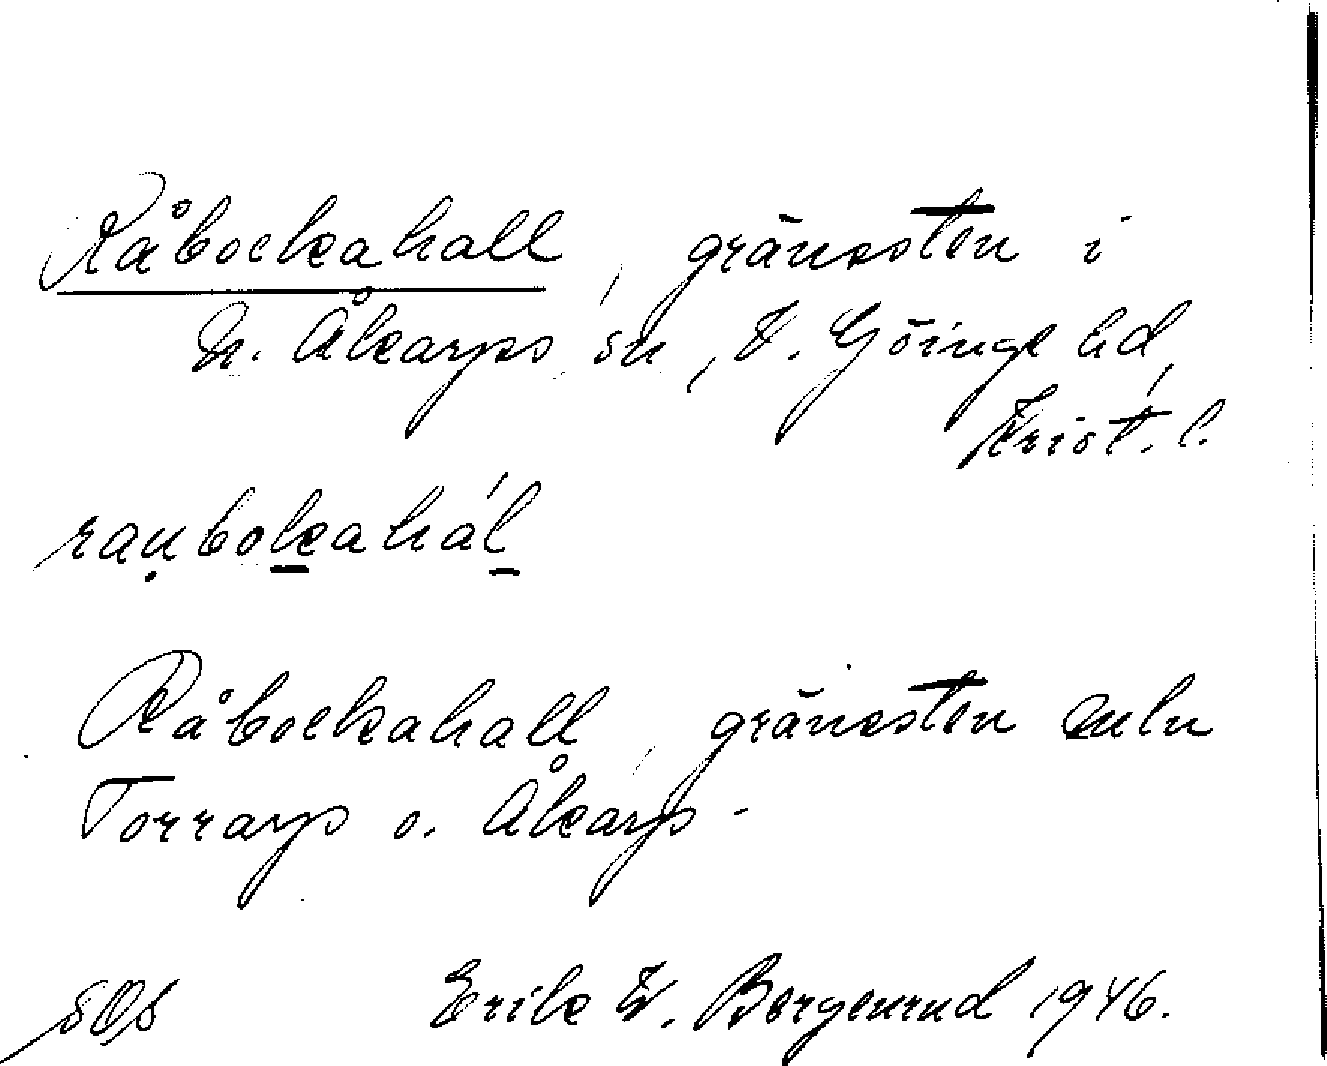 Råbockahall, gränssten i
N. Åkarps sn, V. Göinge hd,
Krist. l.
raṳbok̲ahál̲
Råbockahall, gränssten meln
Torrarp o. Åkarp -
Erik W. Bergenrud 1946.